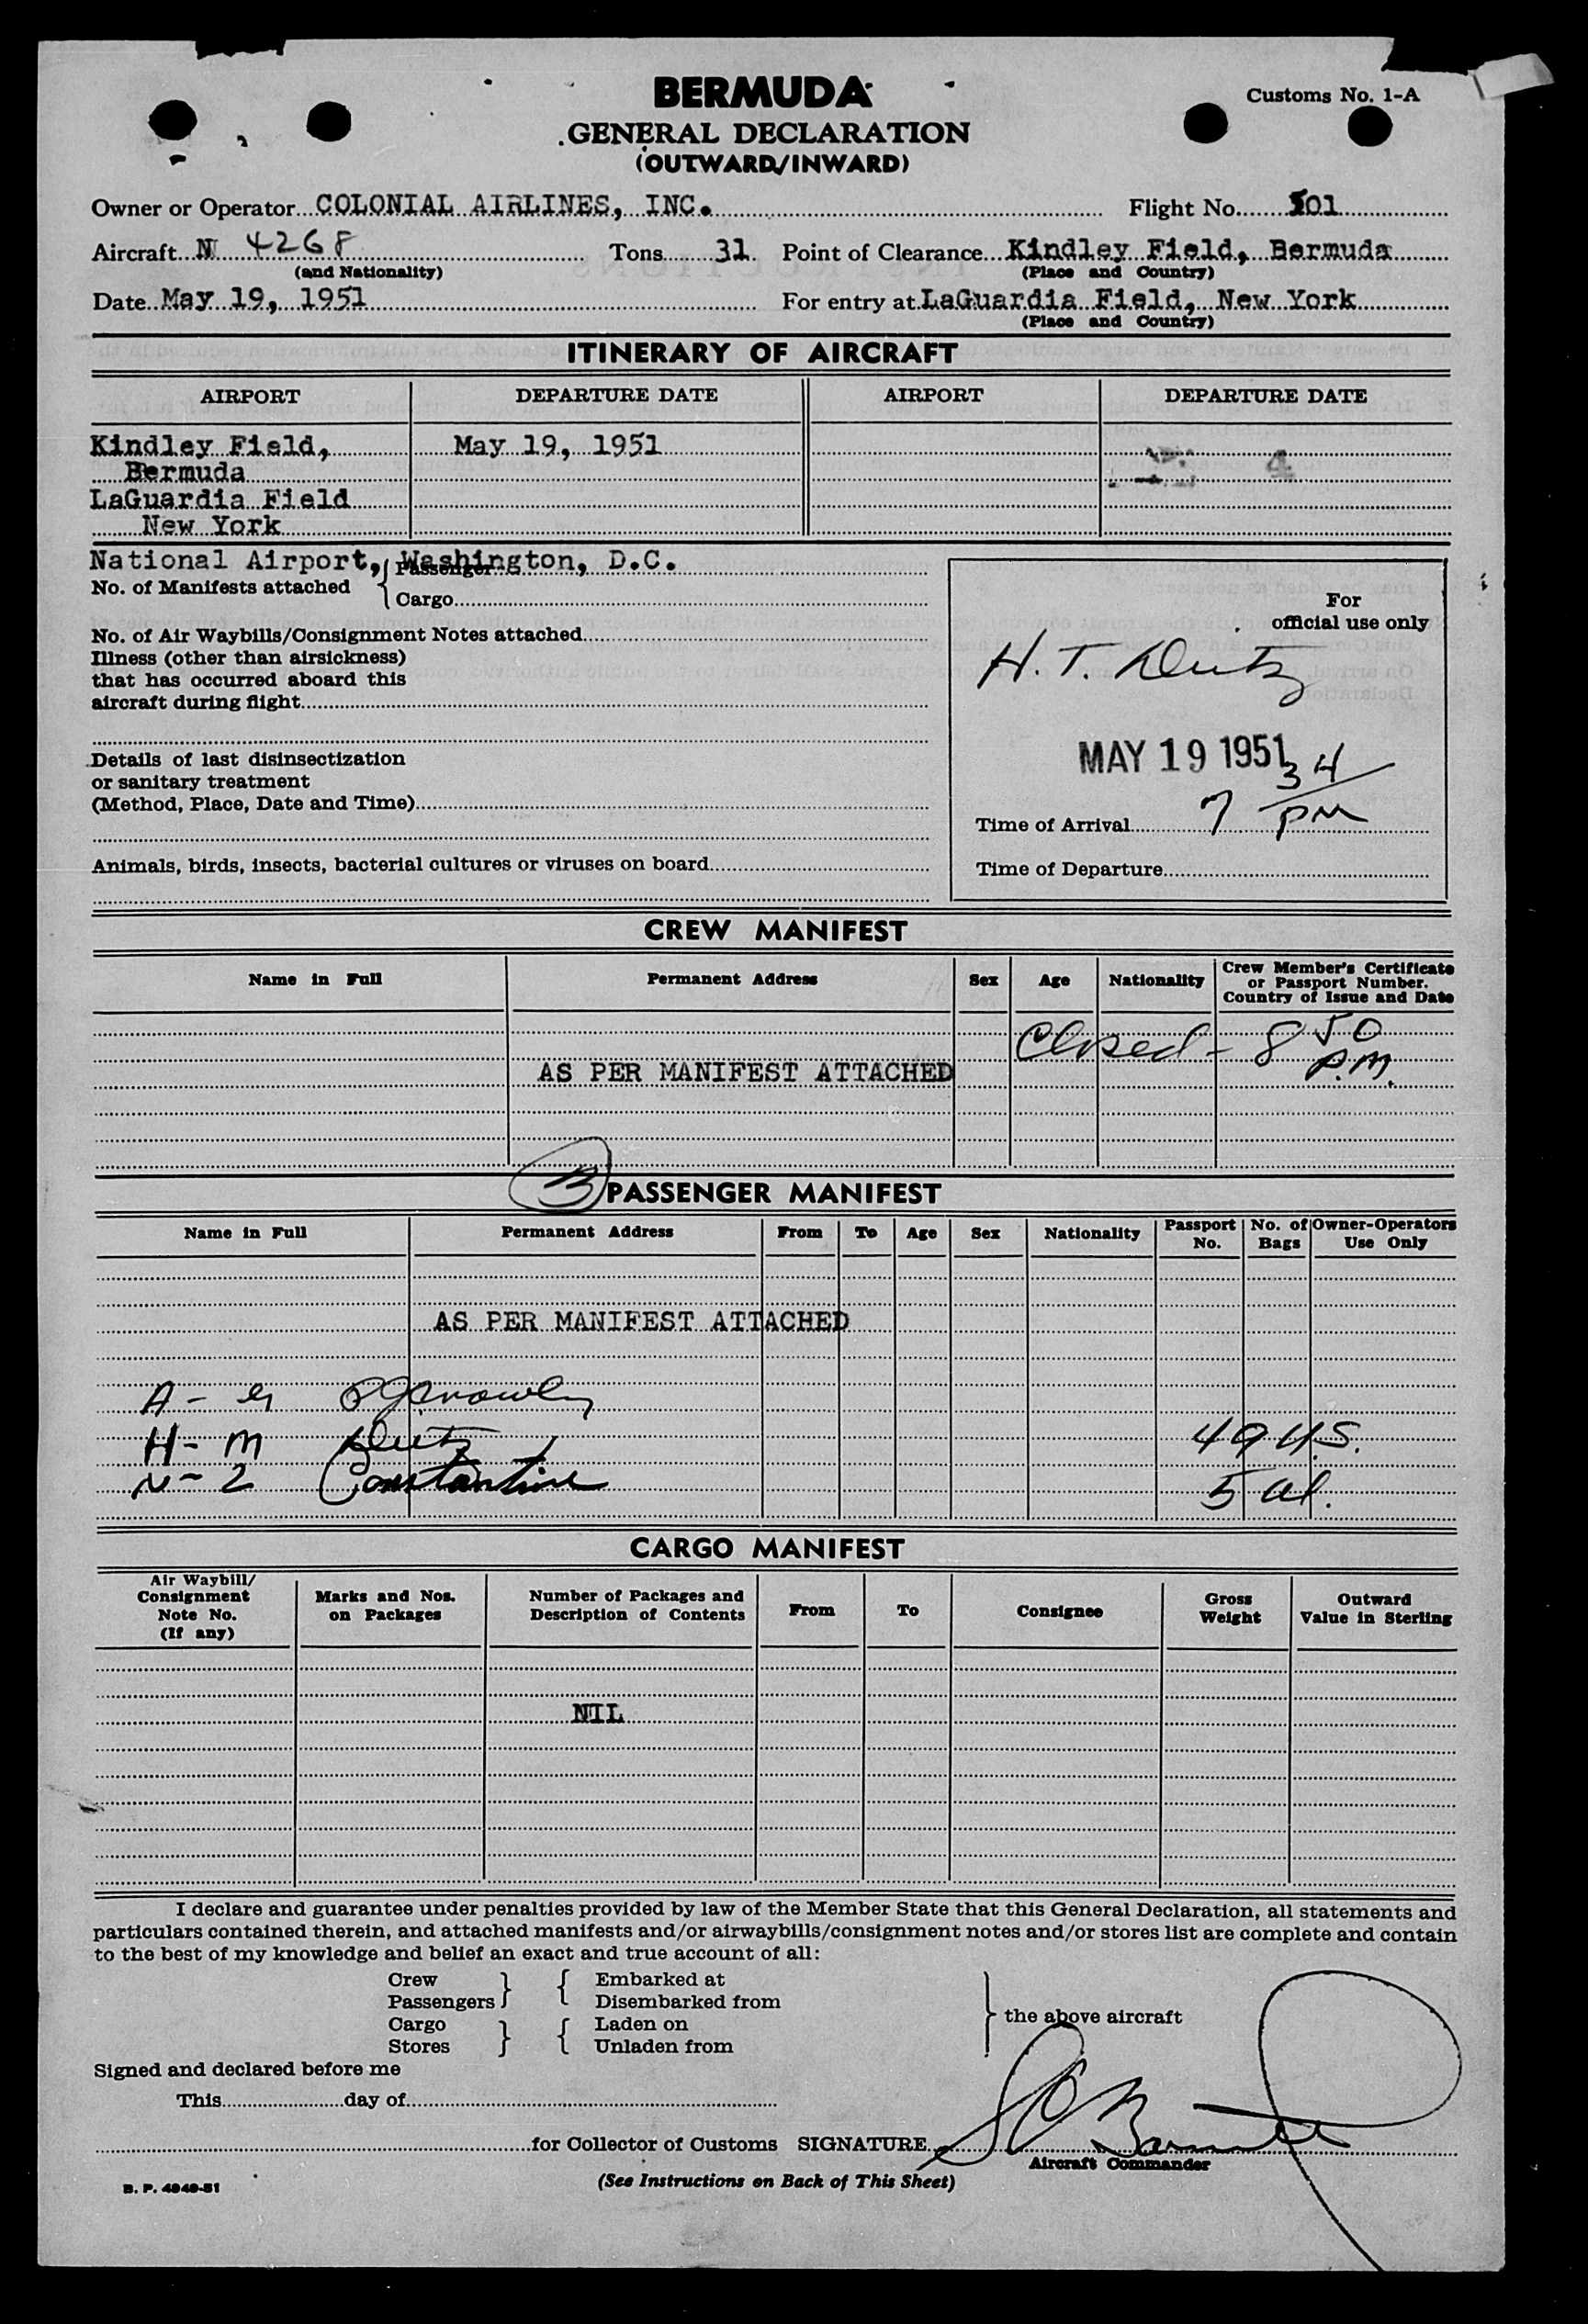 BERMUDA
Customs No. 1-A
GENERAL DECLARATION
(OUTWARD/INWARD)
Owner or Operator COLONIAL AIRLINES, INC. Flight No. 501
Aircraft N 4268 Tons 31 Point of Clearance Kindley Field, Bermuda
(and Nationality) (Place and Country)
Date May 19, 1951 For entry at LaGuardia Field, New York
(Place and Country)
ITINERARY OF AIRCRAFT
AIRPORT DEPARTURE DATE AIRPORT DEPARTURE DATE
Kindley Field, May 19, 1951
Bermuda 4
LaGuardia Field
New York
National Airport, Washington, D.C.
Passenger
No. of Manifests attached
Cargo
For
official use only
No. of Air Waybills/Consignment Notes attached
Illness (other than airsickness)
that has occurred aboard this
aircraft during flight
H. T. Dietz
Details of last disinsectization
or sanitary treatment
(Method, Place, Date and Time)
MAY 19 1951
Time of Arrival 7 34 PM
Animals, birds, insects, bacterial cultures or viruses on board
Time of Departure
CREW MANIFEST
Name in Full Permanent Address Sex Age Nationality Crew Member's Certificate
or Passport Number.
Country of Issue and Date
Closed - 8 50 P.M.
AS PER MANIFEST ATTACHED
PASSENGER MANIFEST
Name in Full Permanent Address From To Age Sex Nationality Passport No. No. of Bags Owner-Operators Use Only
AS PER MANIFEST ATTACHED
A - G
H - M Dietz 49 U.S.
N - Z Constantine 5 Al.
CARGO MANIFEST
Air Waybill/
Consignment
Note No.
(If any)
Marks and Nos.
on Packages
Number of Packages and
Description of Contents
From To Consignee
Gross
Weight
Outward
Value in Sterling
NIL
I declare and guarantee under penalties provided by law of the Member State that this General Declaration, all statements and
particulars contained therein, and attached manifests and/or airwaybills/consignment notes and/or stores list are complete and contain
to the best of my knowledge and belief an exact and true account of all:
Crew Embarked at
Passengers Disembarked from
the above aircraft
Cargo Laden on
Stores Unladen from
Signed and declared before me
This day of
for Collector of Customs SIGNATURE
Aircraft Commander
(See Instructions on Back of This Sheet)
B. P. 4949-51